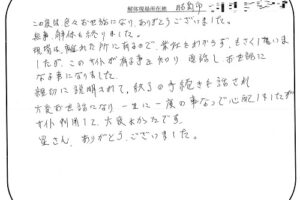 解体現場所在地
この度は色々お世話になり、ありがとうございました。
無事解体も終りました。
現場は、離れた所に有るので、業社もわからず、もさくして居ま
したが、このサイトが有る事を知り、連絡しお世話に
なる事になりました。
親切に説明されて、数々の手続きを話され
大変お世話になり一生に一度の事なので心配しましたが
サイト利用して、大変よかったです。
皆さん、ありがとうございました。